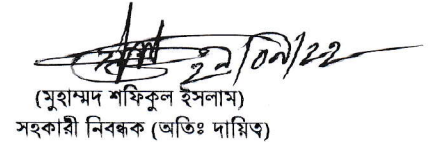 (মুহাম্মদ শফিকুল ইসলাম)
সহকারী নিবন্ধক (অতিঃ দায়িত্ব)